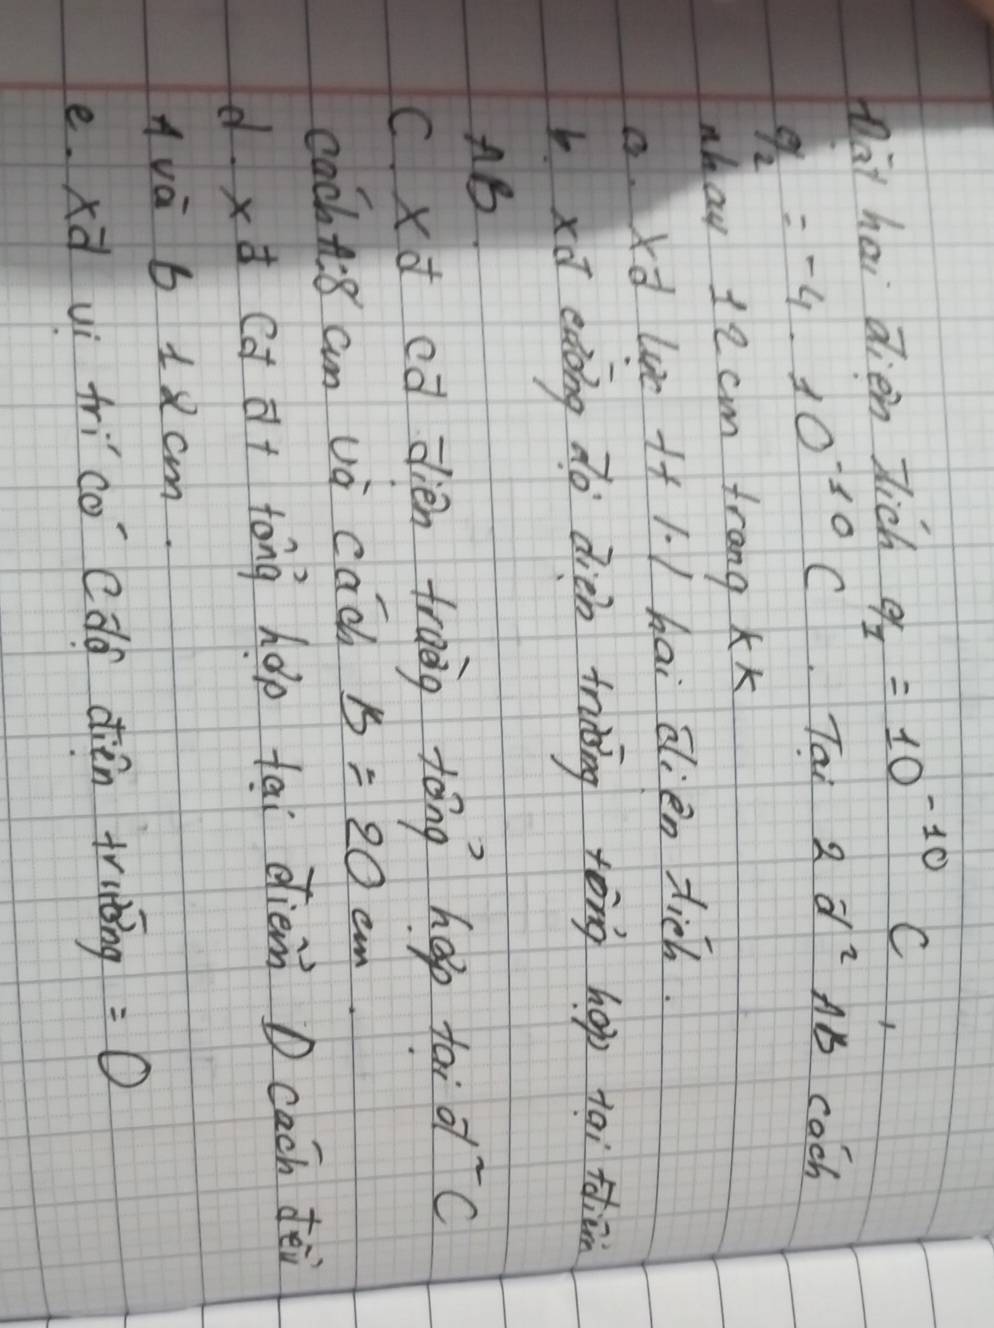 Đặt hai điện tích q₁ = 10⁻¹⁰ C,
q₂ = -4.10⁻¹⁰ C. Tại 2 đ² AB cách
nhau 12cm trong kk
a. xđ lực tt 1.1 hai điện tích.
b. xđ cường độ điện trường tổng hợp tại tđiểm
AB.
C. Xđ cđ điện trường tổng hợp tại đ~ C
cách A:8 cm và cách B = 20 cm.
d. xđ cđ đt tổng hợp tại điểm D cách đều
A và b 12cm.
e. xđ vị trí có cđộ điện trường = 0